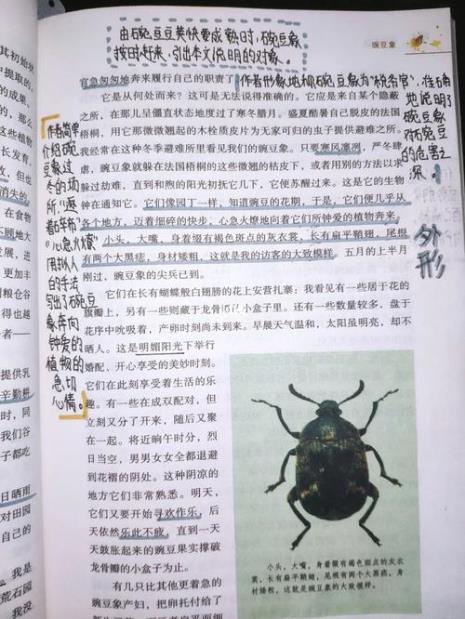 由碗豆豆荚快要成熟时，碗豆象
按时赶来，引出本文说明的对象。
豌豆象
官急匆匆地奔来履行自己的职责了
作者形象地把碗豆象称为“税务官”，准确
地说明了
碗豆象
对碗豆
的危害之
深。
它是从何处而来？这可是无法说得准确的。它应是来自某个隐蔽
之所，在那儿呈僵直状态地度过了寒冬腊月。盛夏酷暑自己脱皮的法国
梧桐，用它那微微翘起的木栓质皮片为无家可归的虫子提供避难之所。
我经常在这种冬季避难所里看见我们的豌豆象。只要寒风凛冽，严冬肆
虐，豌豆象就躲在法国梧桐的这些微翘的枯皮下，或者用别的方法以求
躲过劫难，直到和煦的阳光初抚它几下，它便苏醒过来。这是它的生物
钟在通知它。它们像园丁一样，知道豌豆的花期，于是，它们便几乎从
各个地方，迈着细碎的快步，心急火燎地向着它们所钟爱的植物奔来。
小头，大嘴，身着缀有褐色斑点的灰衣裳，长有扁平鞘翅，尾根
有两个大黑痣，身材矮粗，这就是我的访客的大致模样。五月的上半月
刚过，豌豆象的尖兵已到。
外形
作者简单
介绍碗豆
象过
冬的场
所，“迈
着碎步”
“心急火燎”
用拟人
的手法
写出了碗豆
象奔向
钟爱的
植物的
急切
心情。
它们在长有蝴蝶般白翅膀的花上安营扎寨：我看见有一些居于花的
旗瓣上，另有一些则藏于龙骨瓣的小盒子里。还有一些数量较多，盘于
花序中吮吸着，产卵时刻尚未到来。早晨天气温和，太阳虽明亮，却不
晒人。这是明媚阳光下举行
婚配，开心享受的美妙时刻。
它们在此刻享受着生活的乐
趣。有一些在成双配对，但
立刻又分了开来，随后又聚
在一起。将近晌午时分，烈
日当空，男男女女全都退避
到花褶的阴处。这种阴凉的
地方它们非常熟悉。明天，
它们又要开始寻欢作乐，后
天依然乐此不疲，直到一天
天鼓胀起来的豌豆果实撑破
龙骨瓣的小盒子为止。
有几只比其他更着急的
豌豆象产妇，把卵托付给了
小头，大嘴，身着缀有褐色斑点的灰衣
裳，长有扁平鞘翅，尾根有两个大黑痣，身
材矮粗，这就是豌豆象的大致模样。